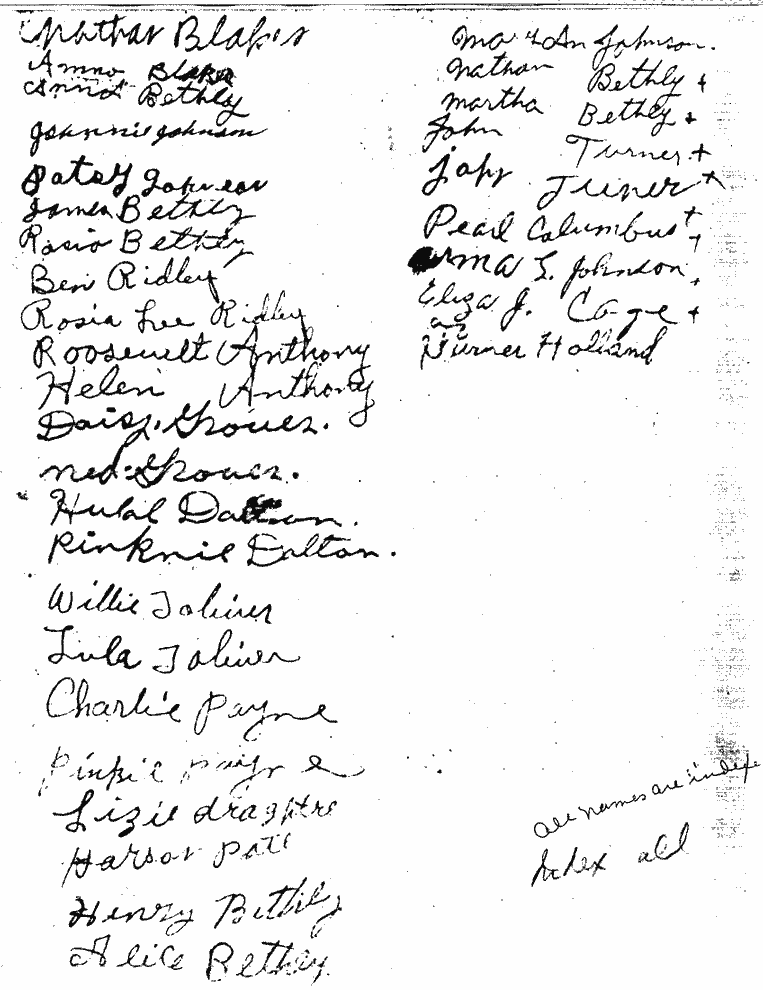 Nathan Blakes
Anna Blake
Anna Bethly
Johnnie Johnson
Patsy Johnson
James Bethly
Rosie Bethly
Ben Ridley
Rosia Lee Ridley
Roosevelt Anthony
Helen Anthony
Daisy. Groves.
Ned. Groves.
Dalton.
Pinknie Dalton.
Willie Toliver
Lula Toliver
Charlie Payne
Pinkie Payne
Lizie
Pate
Henry Bethly
Alice Bethey
Johnson.
Nathan Bethly +
Martha Bethly +
John Turner +
Turner +
Pearl Columbus +
Erma L. Johnson +
Eliza J. Cage +
Turner Holland
all names are indexe
Index all